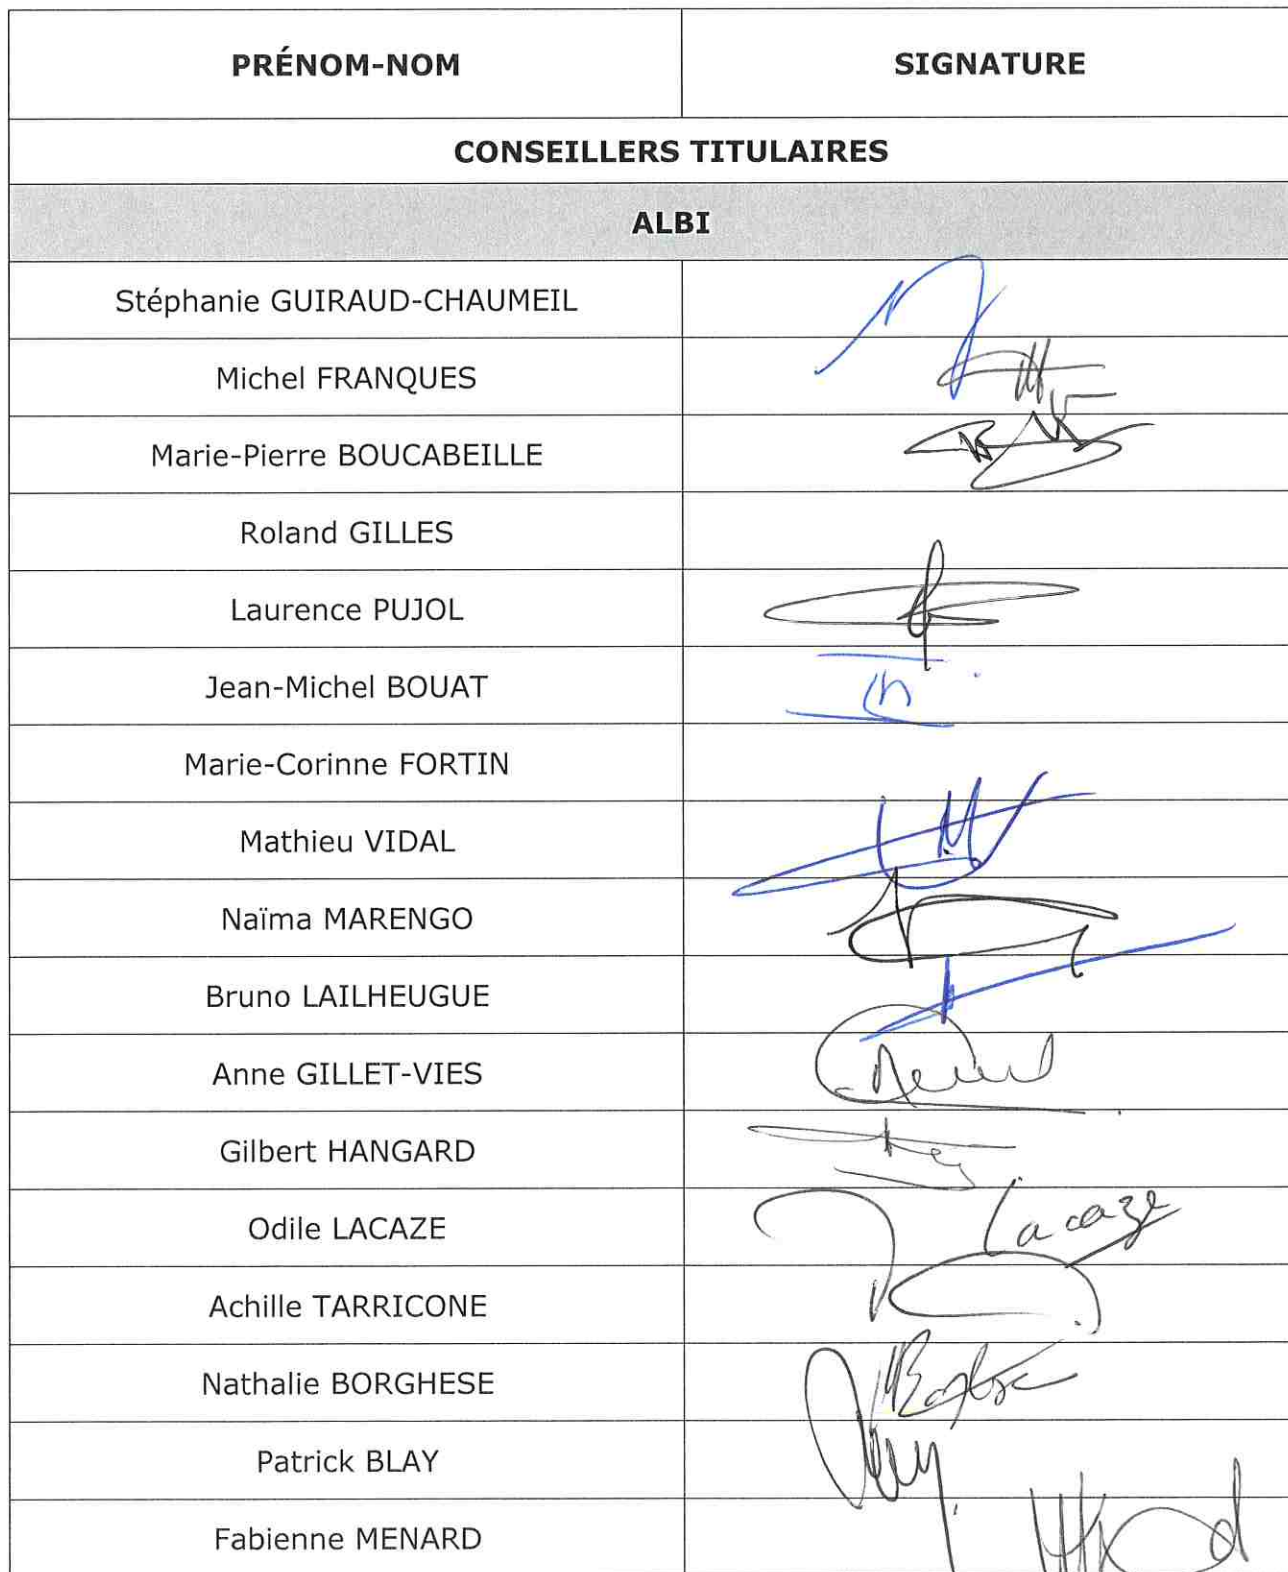 PRÉNOM-NOM SIGNATURE
CONSEILLERS TITULAIRES
ALBI
Stéphanie GUIRAUD-CHAUMEIL
Michel FRANQUES
Marie-Pierre BOUCABEILLE
Roland GILLES
Laurence PUJOL
Jean-Michel BOUAT
Marie-Corinne FORTIN
Mathieu VIDAL
Naïma MARENGO
Bruno LAILHEUGUE
Anne GILLET-VIES
Gilbert HANGARD
Odile LACAZE Lacaze
Achille TARRICONE
Nathalie BORGHESE
Patrick BLAY
Fabienne MENARD